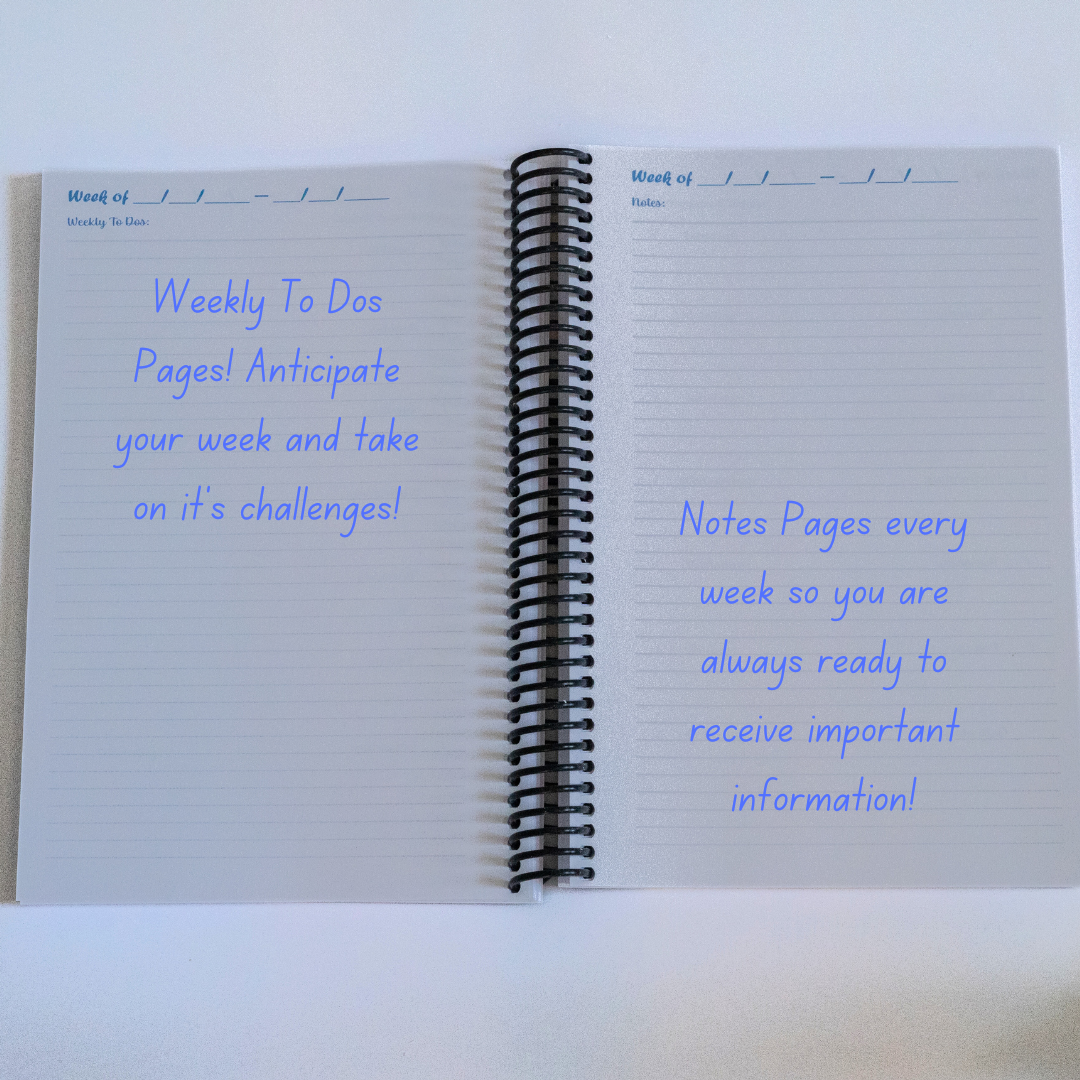 Week of __/__/____ — __/__/____
Weekly To Dos:
Weekly To Dos
Pages! Anticipate
your week and take
on it's challenges!
Week of __/__/____ — __/__/____
Notes:
Notes Pages every
week so you are
always ready to
receive important
information!